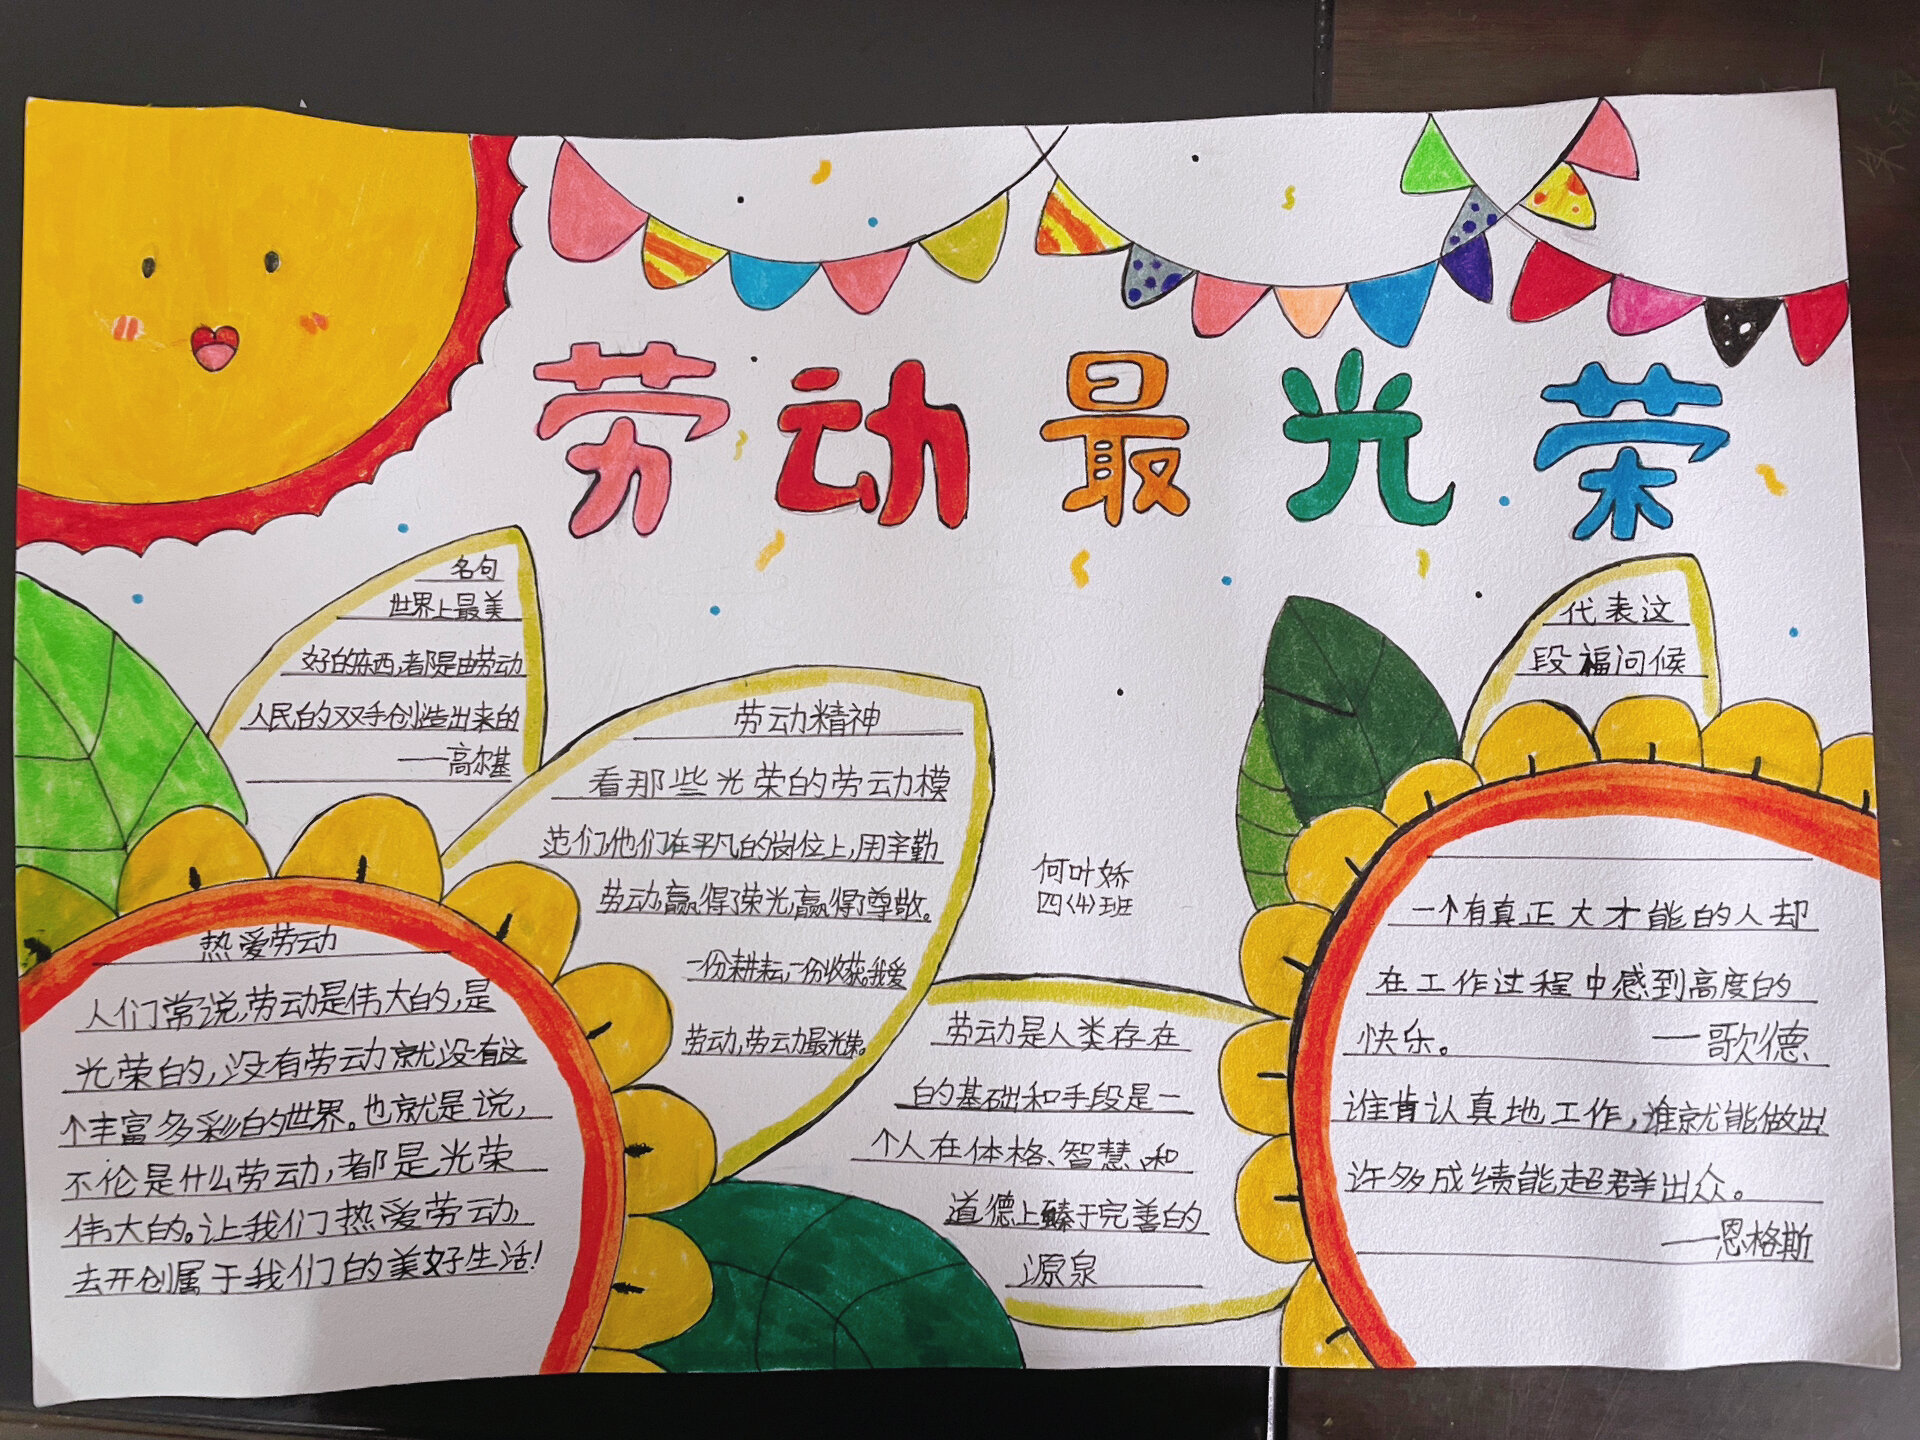 劳动最光荣
名句
世界上最美
好的东西,都是由劳动
人民的双手创造出来的
——高尔基
劳动精神
看那些光荣的劳动模
范们,他们在平凡的岗位上,用辛勤
劳动,赢得了荣光,赢得了尊敬。
一份耕耘,一份收获。我爱
劳动,劳动最光荣。
热爱劳动
人们常说,劳动是伟大的,是
光荣的,没有劳动就没有这
个丰富多彩的世界。也就是说,
不伦是什么劳动,都是光荣
伟大的。让我们热爱劳动,
去开创属于我们的美好生活!
何叶娇
四(4)班
劳动是人类存在
的基础和手段是一
个人在体格、智慧、和
道德上臻于完善的
源泉
代表这
段福问候
一个有真正大才能的人却
在工作过程中感到高度的
快乐。 —歌德
谁肯认真地工作,谁就能做出
许多成绩能超群出众。
——恩格斯